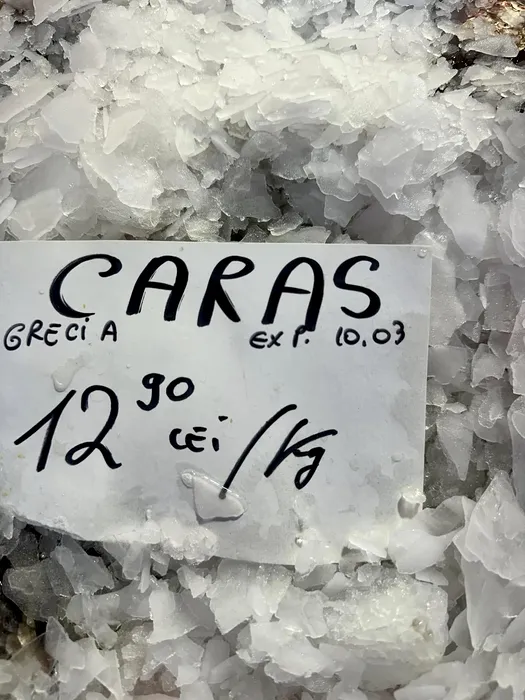 CARAS
GRECiA EXP. 10.03
12 90 LEi/Kg